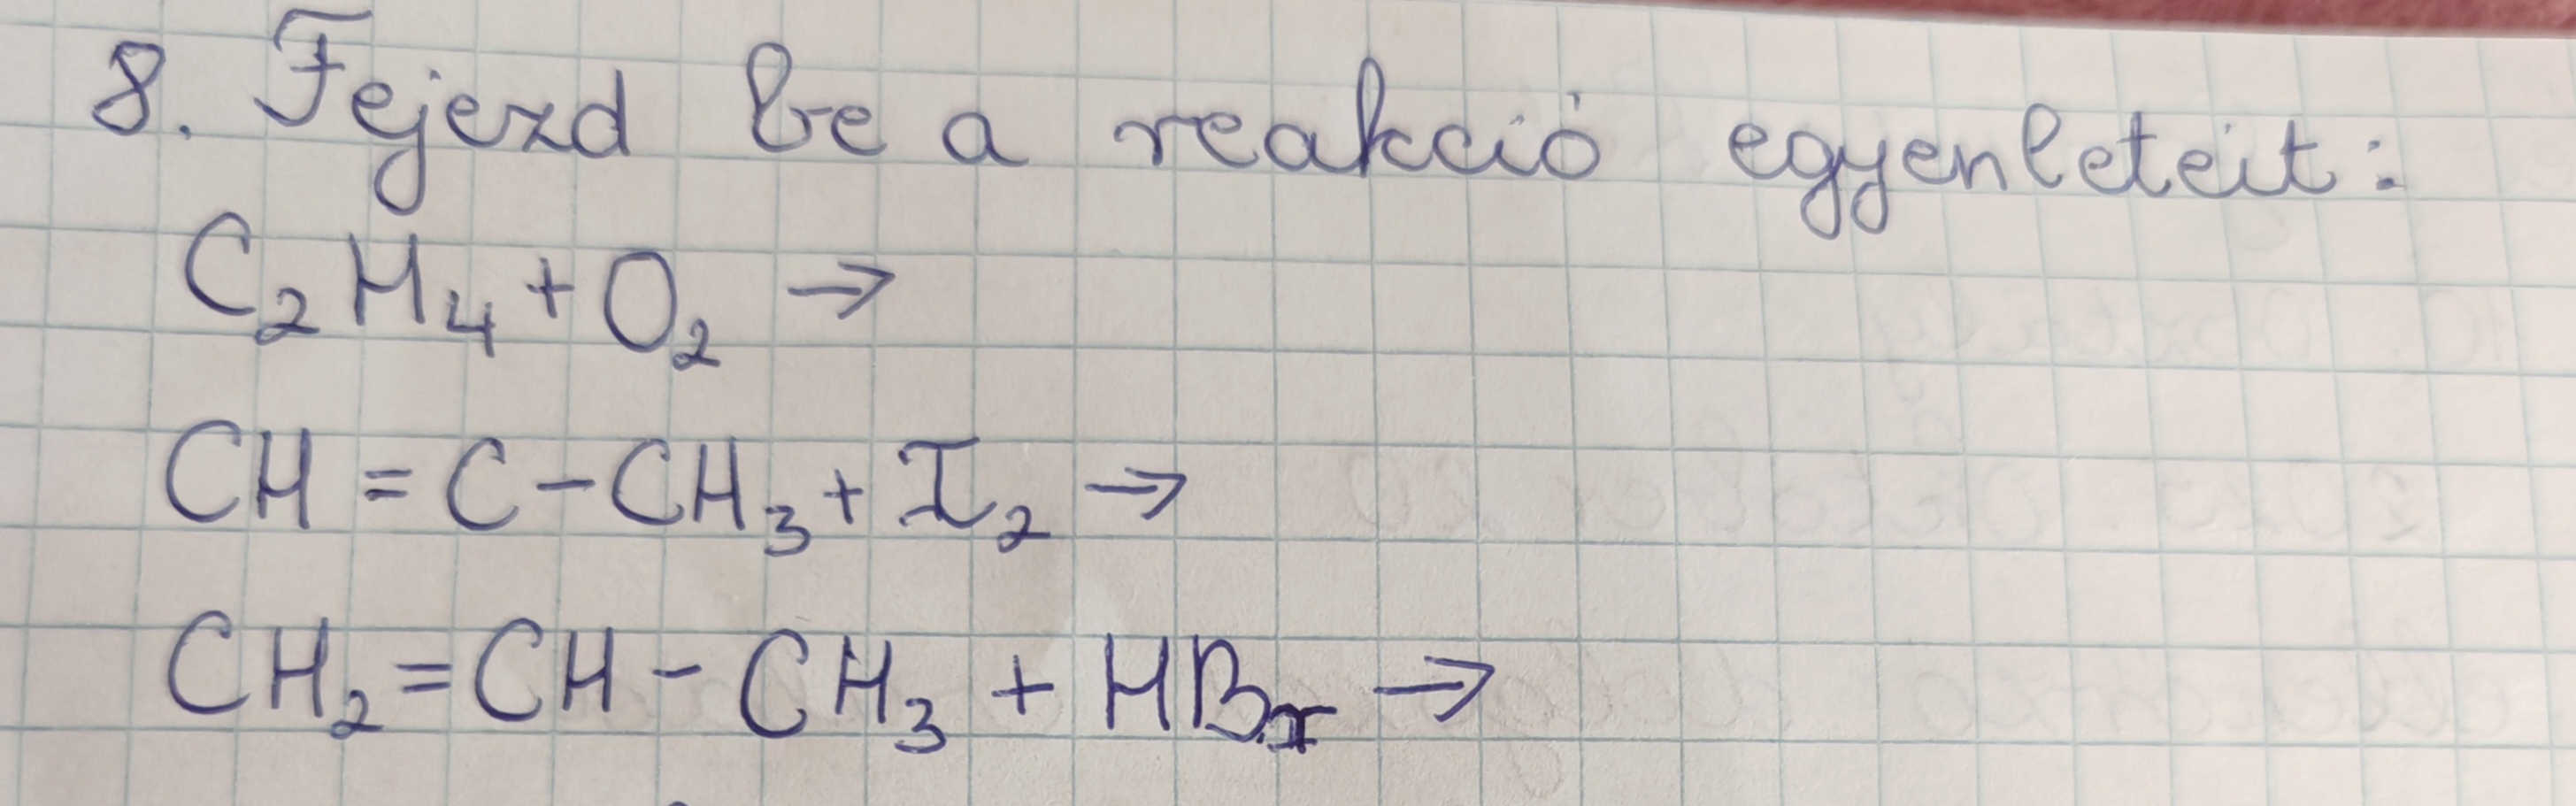 8. Fejezd be a reakció egyenleteit:
C₂H₄ + O₂ →
CH = C - CH₃ + I₂ →
CH₂ = CH - CH₃ + HBr →